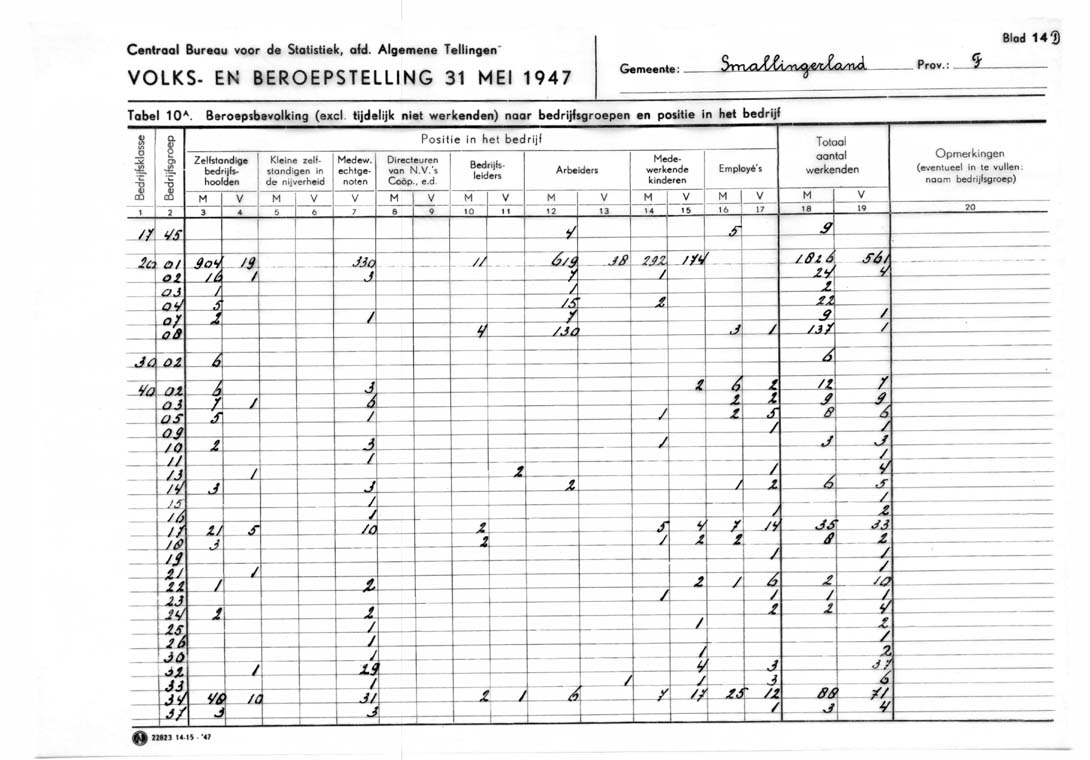 Blad 14 D
Centraal Bureau voor de Statistiek, afd. Algemene Tellingen
VOLKS- EN BEROEPSTELLING 31 MEI 1947
Gemeente: Smallingerland Prov.: F
Tabel 10A. Beroepsbevolking (excl. tijdelijk niet werkenden) naar bedrijfsgroepen en positie in het bedrijf
Bedrijfsklasse Bedrijfsgroep Positie in het bedrijf Totaal aantal werkenden Opmerkingen (eventueel in te vullen: naam bedrijfsgroep)
Zelfstandige bedrijfshoofden Kleine zelfstandigen in de nijverheid Medew. echtgenoten Directeuren van N.V.'s Coöp., e.d. Bedrijfsleiders Arbeiders Medewerkende kinderen Employé's
M V M V V M V M V M V M V M V M V
1 2 3 4 5 6 7 8 9 10 11 12 13 14 15 16 17 18 19 20
17 45 4 5 9
20 01 904 19 330 11 619 38 292 174 1826 561
02 16 1 3 7 1 24 4
03 1 1 2
04 5 15 2 22
07 2 1 7 9 1
08 4 130 3 1 137 1
30 02 6 6
40 02 6 3 2 6 2 12 7
03 7 1 6 2 2 9 9
05 5 1 1 2 5 8 6
09 1 1
10 2 3 1 3 3
11 1 1
13 1 2 1 4
14 3 3 2 1 2 6 5
15 1 1
16 1 1 2
17 21 5 10 2 5 4 7 14 35 33
18 3 2 1 2 2 8 2
19 1 1
21 1 1
22 1 2 2 1 6 2 10
23 1 1 1 1
24 2 2 2 2 4
25 1 1 2
26 1 1
30 1 1 2
32 1 29 4 3 37
33 1 1 1 3 6
34 48 10 31 2 1 6 7 17 25 12 88 71
37 3 3 1 3 4
22823 14-15 - '47